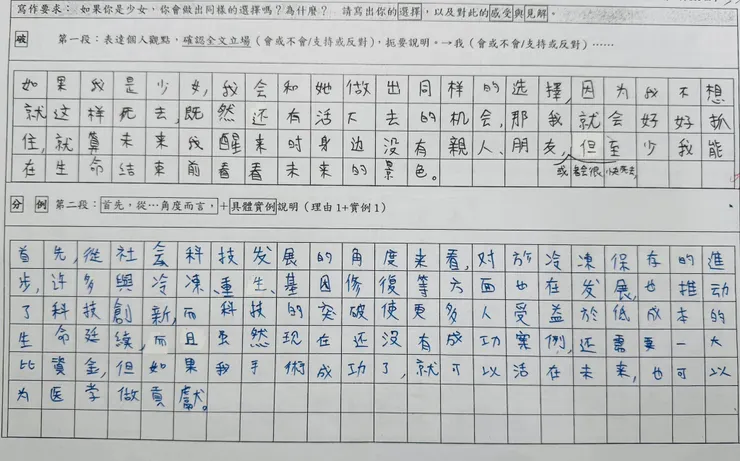 寫作要求：如果你是少女，你會做出同樣的選擇嗎？為什麼？ 請寫出你的選擇，以及對此的感受與見解。
破 第一段：表達個人觀點，確認全文立場（會或不會/支持或反對），扼要說明。→我（會或不會/支持或反對）……
如果我是少女，我会和她做出同样的选擇，因为我不想
就这样死去，既然还有活下去的机会，那我就会好好抓
住，就算未來我醒来时身边没有親人、朋友，但至少我能
或者会很快死去，
在生命结束前看看未来的景色。
分 例 第二段：首先，從…角度而言，＋具體實例說明（理由1+實例1）
首先，從社会科技发展的角度来看，对於冷凍保存的進
步，许多與冷凍、重生、基因修復等方面也在发展，也推动
了科技創新，而科技的突破使更多人受益於低成本的
生命延續，而且虽然现在还没有成功案例，还需要一大
比資金，但如果我手術成功了，就可以活在未来，也可以
为医学做貢獻。